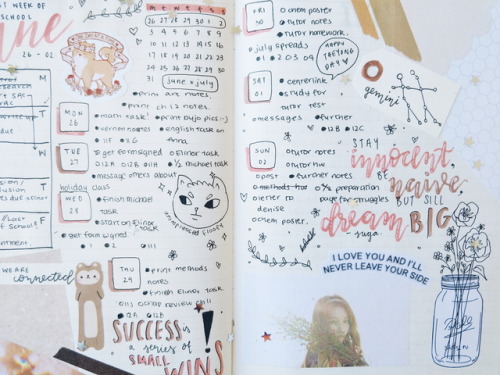 ST WEEK OF
SCHOOL
une
26 - 02
M
T
W
T
F
WE ARE
connected
M T W T F S S
26 27 28 29 30 1 2
3 4 5 6 7 8 9
10 11 12 13 14 15 16
17 18 19 20 21 22 23
24 25 26 27 28 29 30
31
june & july
print art notes
print ch 12 notes
MON
26
math task!
print bujo pics :-)
vernon notes
english task on
anna
TUE
27
get form signed
Elinor task
12A 12B 11H
½ michael task
message omers about
holiday class
WED
28
finish michael
task
start on Elinor
task
get form signed
1 2 111
unimpressed floofy
THU
29
print methods
notes
finish Elinor task
12A 12B
SUCCESS is
a series of
SMALL
WINS!
FRI
30
ochem poster
tutor notes
tutor homework
july spreads
1 2 03 09
HAPPY
TAEYONG
DAY
SAT
01
centerlink
study for
tutor test
messages
further
12B 12C
gemini
SUN
02
tutor notes
tutor hw
post
further notes
0% preparation
page for struggles
denise
ochem poster
STAY
innocent,
BE
naive,
BUT STILL
dream BIG
- suga
I LOVE YOU AND I'LL
NEVER LEAVE YOUR SIDE